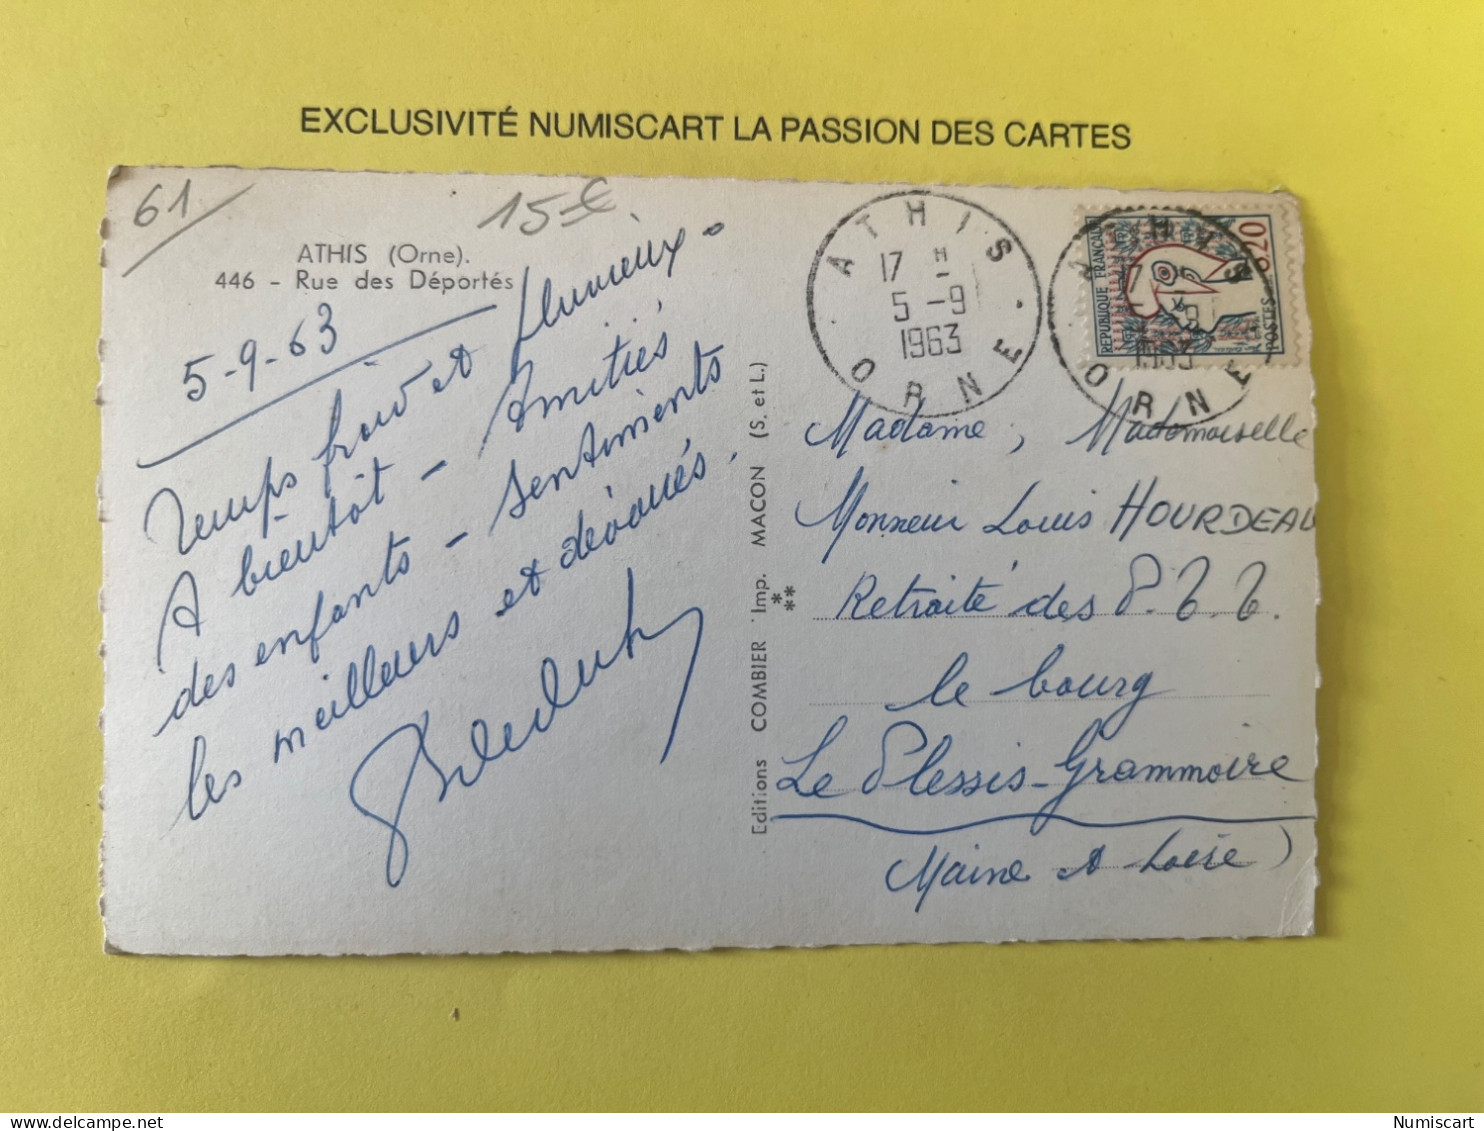 EXCLUSIVITÉ NUMISCART LA PASSION DES CARTES
61
15 €
ATHIS (Orne).
446 - Rue des Déportés
5-9-63
Temps froid et pluvieux -
A bientôt - Amitiés
des enfants - Sentiments
les meilleurs et dévoués.
ATHIS
17 H
5 - 9
1963
ORNE
REPUBLIQUE FRANÇAISE
0,20
POSTES
ATHIS
ORNE
Editions COMBIER Imp. MACON (S. et L.)
Madame, Mademoiselle
Monsieur Louis HOURDEAU
Retraité des P.T.T.
le bourg
Le Plessis-Grammoire
(Maine et Loire)
Numiscart